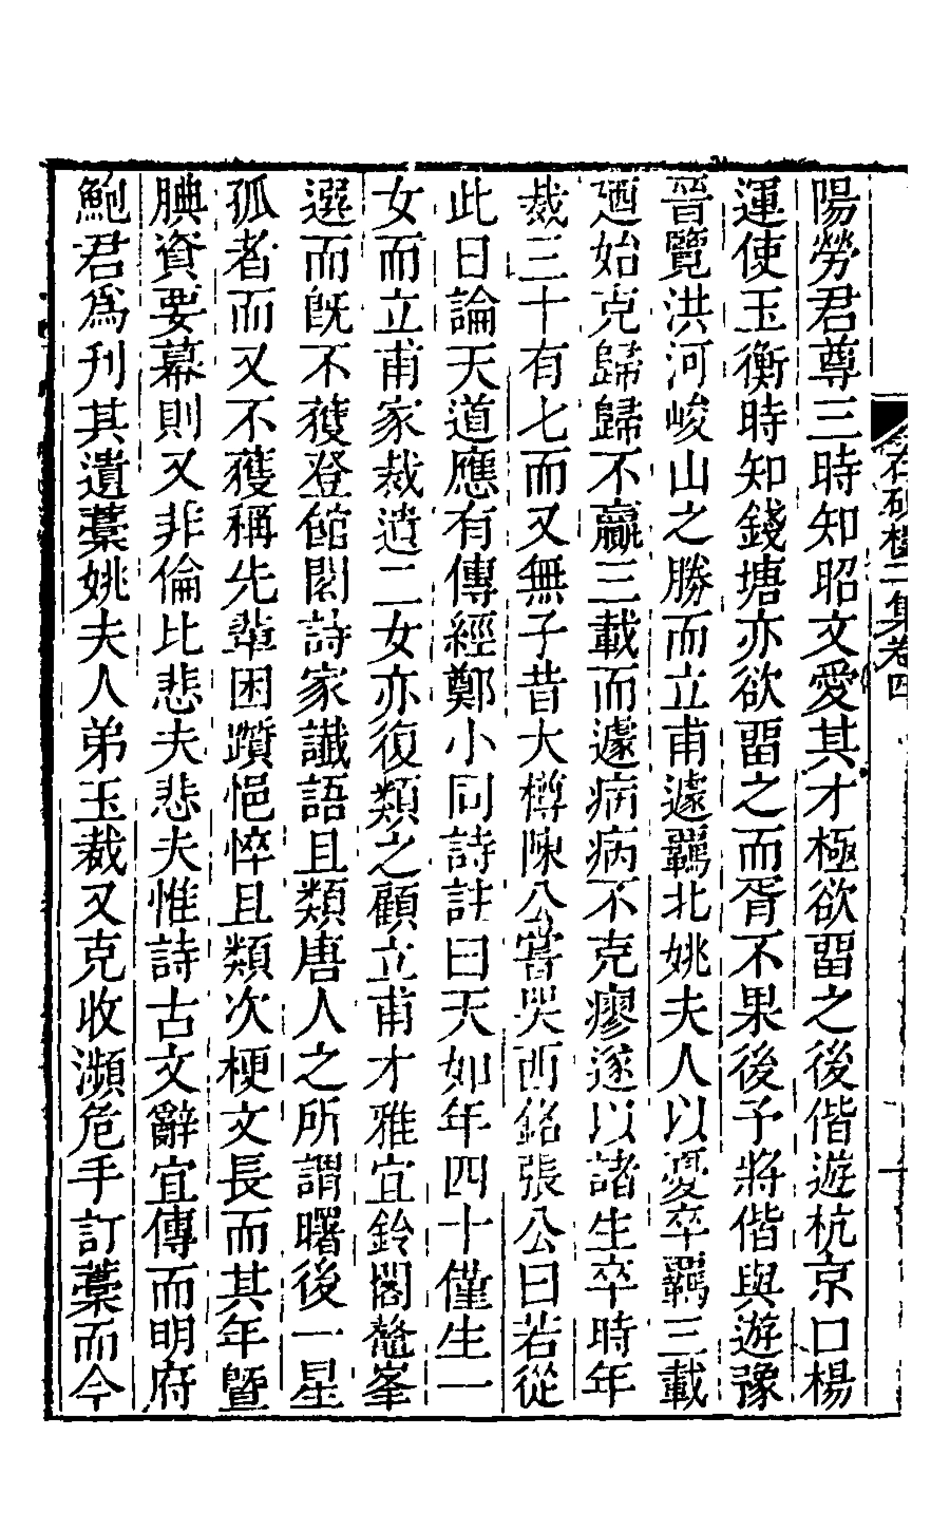 陽勞君尊三時知昭文愛其才極欲畱之後偕遊杭京口楊
運使玉衡時知錢塘亦欲畱之而胥不果後予將偕與遊豫
晉覽洪河峻山之勝而立甫遽羈北姚夫人以憂卒羈三載
迺始克歸歸不贏三載而遽病病不克瘳遂以諸生卒時年
裁三十有七而又無子昔大樽陳公嘗哭西銘張公曰若從
此日論天道應有傳經鄭小同詩註曰天如年四十僅生一
女而立甫家裁遺二女亦復類之顧立甫才雅宜鈴閣鼇峯
選而旣不獲登館閣詩家讖語且類唐人之所謂曙後一星
孤者而又不獲稱先輩困躓悒悴且類次梗文長而其年曁
腆資要幕則又非倫比悲夫悲夫惟詩古文辭宜傳而明府
鮑君爲刊其遺藁姚夫人弟玉裁又克收瀕危手訂藁而今
存硯樓二集卷四